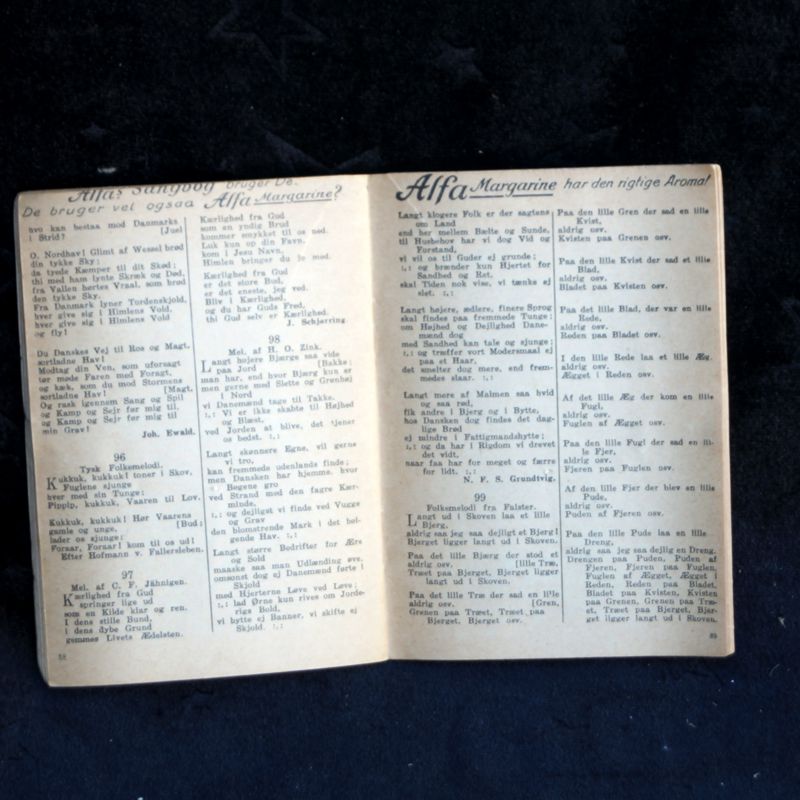 Alfas Sangbog bruger De.
De bruger vel ogsaa Alfa Margarine?
hvo kan bestaa mod Danmarks
i Strid? [Juel
O, Nordhav! Glimt af Wessel brød
din tykke Sky;
da tyede Kæmper til dit Skød;
thi med ham lynte Skræk og Død,
fra Vallen hørtes Vraal, som brød
den tykke Sky.
Fra Danmark lyner Tordenskjold,
hver give sig i Himlens Vold
hver give sig i Himlens Vold
og fly!
Du Danskes Vej til Ros og Magt,
sortladne Hav!
Modtag din Ven, som uforsagt
tør møde Faren med Foragt,
og kæk, som du mod Stormens
sortladne Hav! [Magt,
Og rask igennem Sang og Spil
og Kamp og Sejr før mig til,
og Kamp og Sejr før mig til
min Grav!
Joh. Ewald.
96
Tysk Folkemelodi.
Kukkuk, kukkuk! toner i Skov,
Fuglene sjunge
hver med sin Tunge:
Pippip, kukkuk, Vaaren til Lov.
Kukkuk, kukkuk! Hør Vaarens
gamle og unge, [Bud;
lader os sjunge:
Foraar, Foraar! kom til os ud!
Efter Hofmann v. Fallersleben.
97
Mel. af C. F. Jähnigen.
Kærlighed fra Gud
springer lige ud
som en Kilde klar og ren.
I dens stille Bund,
i dens dybe Grund
gemmes Livets Ædelsten.
58
Kærlighed fra Gud
som en yndig Brud
kommer smykket til os ned.
Luk kun op din Favn,
kom i Jesu Navn,
Himlen bringer du ls med.
Kærlighed fra Gud
er det store Bud,
er det eneste, jeg ved.
Bliv i Kærlighed,
og du har Guds Fred,
thi Gud selv er Kærlighed.
J. Schjørring.
98
Mel. af H. O. Zink.
Langt højere Bjærge saa vide
paa Jord [Bakke;
man har, end hvor Bjærg kun er
men gerne med Slette og Grønhøj
i Nord
vi Danemænd tage til Takke.
:,: Vi er ikke skabte til Højhed
og Blæst,
ved Jorden at blive, det tjener
os bedst. :,:
Langt skønnere Egne, vil gerne
vi tro,
kan fremmede udenlands finde;
men Dansken har hjemme, hvor
Bøgene gro
ved Strand med den fagre Kær-
minde,
:,: og dejligst vi finde ved Vugge
og Grav
den blomstrende Mark i det bøl-
gende Hav. :,:
Langt større Bedrifter for Ære
og Sold
maaske saa man Udlænding øve.
omsonst dog ej Danemænd førte i
Skjold
med Hjerterne Løve ved Løve;
:,: lad Ørne kun rives om Jorde-
rigs Bold,
vi bytte ej Banner, vi skifte ej
Skjold. :,:
Alfa Margarine har den rigtige Aroma!
Langt klogere Folk er der sagtens
om Land
end her mellem Bælte og Sunde,
til Husbehov har vi dog Vid og
Forstand,
vi vil os til Guder ej grunde;
:,: og brænder kun Hjertet for
Sandhed og Ret.
skal Tiden nok vise, vi tænks ej
slet. :,:
Langt højere, ædlere, finere Sprog
skal findes paa fremmede Tunge;
om Højhed og Dejlighed Dane-
mænd dog
med Sandhed kan tale og sjunge;
:,: og træffer vort Modersmaal ej
paa et Haar,
det smelter dog mere, end frem-
medes slaar. :,:
Langt mere af Malmen saa hvid
og saa rød,
fik andre i Bjerg og i Bytte,
hos Dansken dog findes det dag-
lige Brød
ej mindre i Fattigmandshytte;
:,: og da har i Rigdom vi drevet
det vidt,
naar faa har for meget og færre
for lidt. :,:
N. F. S. Grundtvig.
99
Folkemelodi fra Falster.
Langt ud i Skoven laa et lille
Bjerg,
aldrig saa jeg saa dejligt et Bjerg!
Bjerget ligger langt ud i Skoven.
Paa det lille Bjærg der stod et
aldrig osv. [lille Træ,
Træet paa Bjerget, Bjerget ligger
langt ud i Skoven.
Paa det lille Træ der sad en lille
aldrig osv. [Gren,
Grenen paa Træet, Træet paa
Bjerget, Bjerget osv.
Paa den lille Gren der sad en lille
Kvist,
aldrig osv.
Kvisten paa Grenen osv.
Paa den lille Kvist der sad et lille
Blad,
aldrig osv.
Bladet paa Kvisten osv.
Paa det lille Blad, der var en lille
Rede,
aldrig osv.
Reden paa Bladet osv.
I den lille Rede laa et lille Æg,
aldrig osv.
Ægget i Reden osv.
Af det lille Æg der kom en lille
Fugl,
aldrig osv.
Fuglen af Ægget osv.
Paa den lille Fugl der sad en lil-
le Fjer,
aldrig osv.
Fjeren paa Fuglen osv.
Af den lille Fjer der blev en lille
Pude,
aldrig osv.
Puden af Fjeren osv.
Paa den lille Pude laa en lille
Dreng,
aldrig saa jeg saa dejlig en Dreng.
Drengen paa Puden, Puden af
Fjeren, Fjeren paa Fuglen,
Fuglen af Ægget, Ægget i
Reden, Reden paa Bladet,
Bladet paa Kvisten, Kvisten
paa Grenen, Grenen paa Træ-
et, Træet paa Bjerget, Bjer-
get ligger langt ud i Skoven.
59